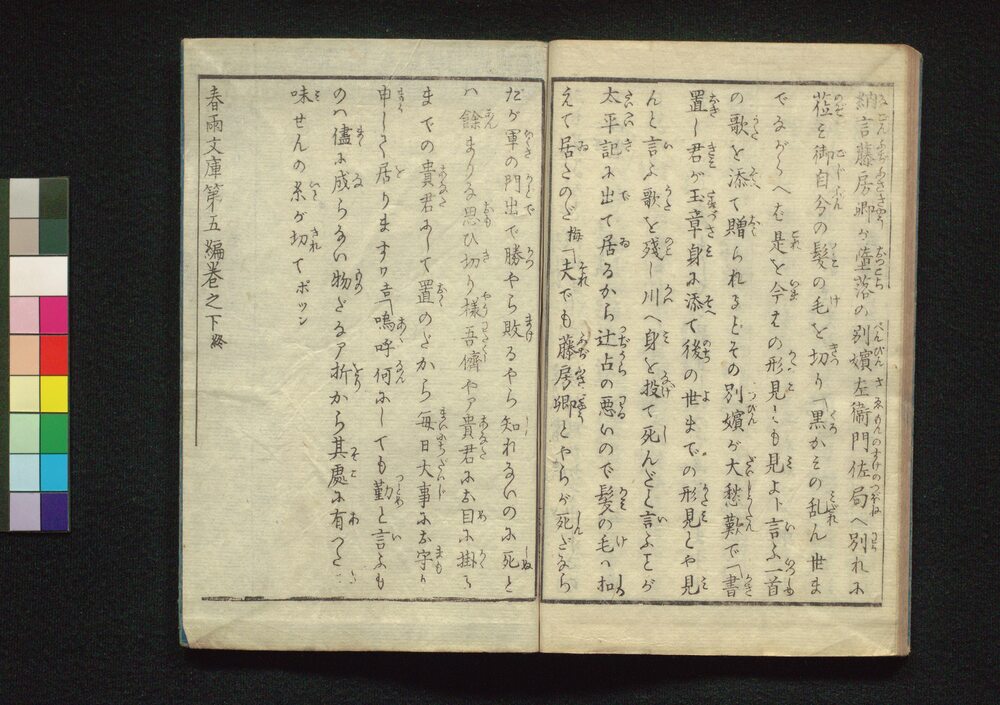 納言藤房卿が墮落の別嬪左衞門佐局へ別れに
莅を御自分の髮の毛を切り「黒かミの乱ん世ま
でながらへば是を今はの形見とも見よト言ふ一首
の歌を添て贈られるとその別嬪が大愁歎で「書
置し君が玉章身に添て後の世までの形見とや見
んと言ふ歌を殘し川へ身を投て死んだと言ふことが
太平記に出て居るから辻占の悪いので髮の毛ハ扣
えて居たのだ梅「夫でも藤房卿とやらが死だなら
だが軍の門出で勝やら敗るやら知れないのに死と
ハ餘まりな思ひ切り樣吾儕やア貴君にお目に掛る
までの貴君にして置のだから毎日大事にお守り
申して居りますワ吉「嗚呼何にしても勤と言ふも
のハ儘に成らない物だなア折から其處に有つた三
味せんの糸が切てポツン
春雨文庫第五編巻之下終